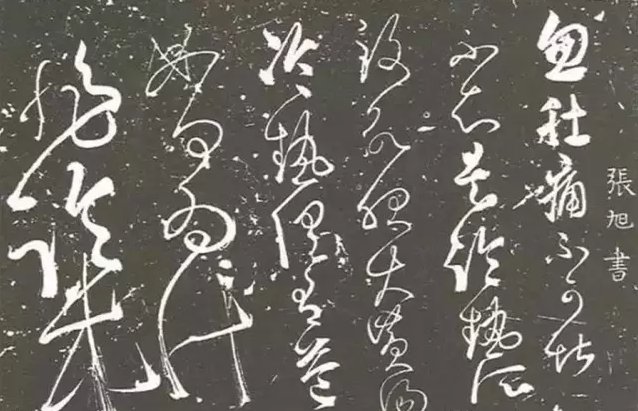 張旭書
忽肚痛不可堪
不知是冷熱所
致欲服大黃湯
冷熱俱有益
如何為計
非冷哉